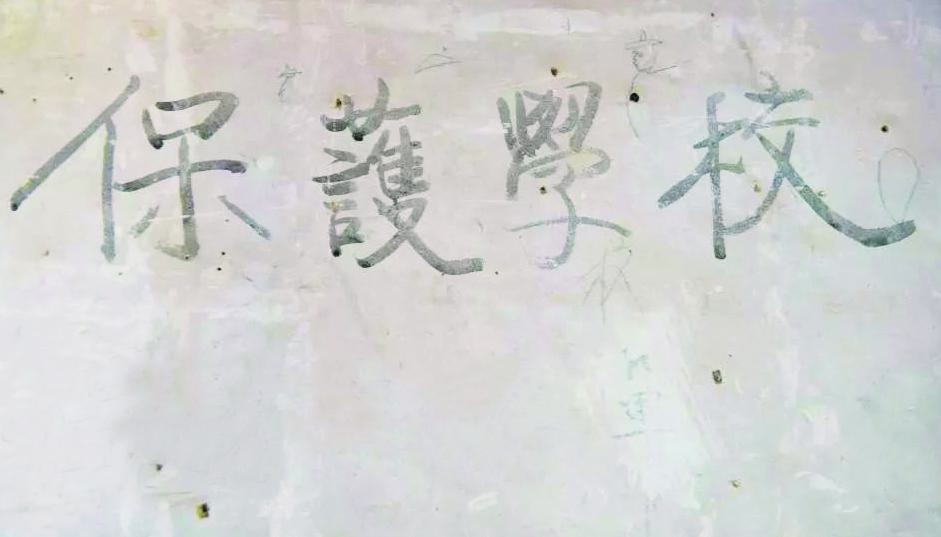 保護學校